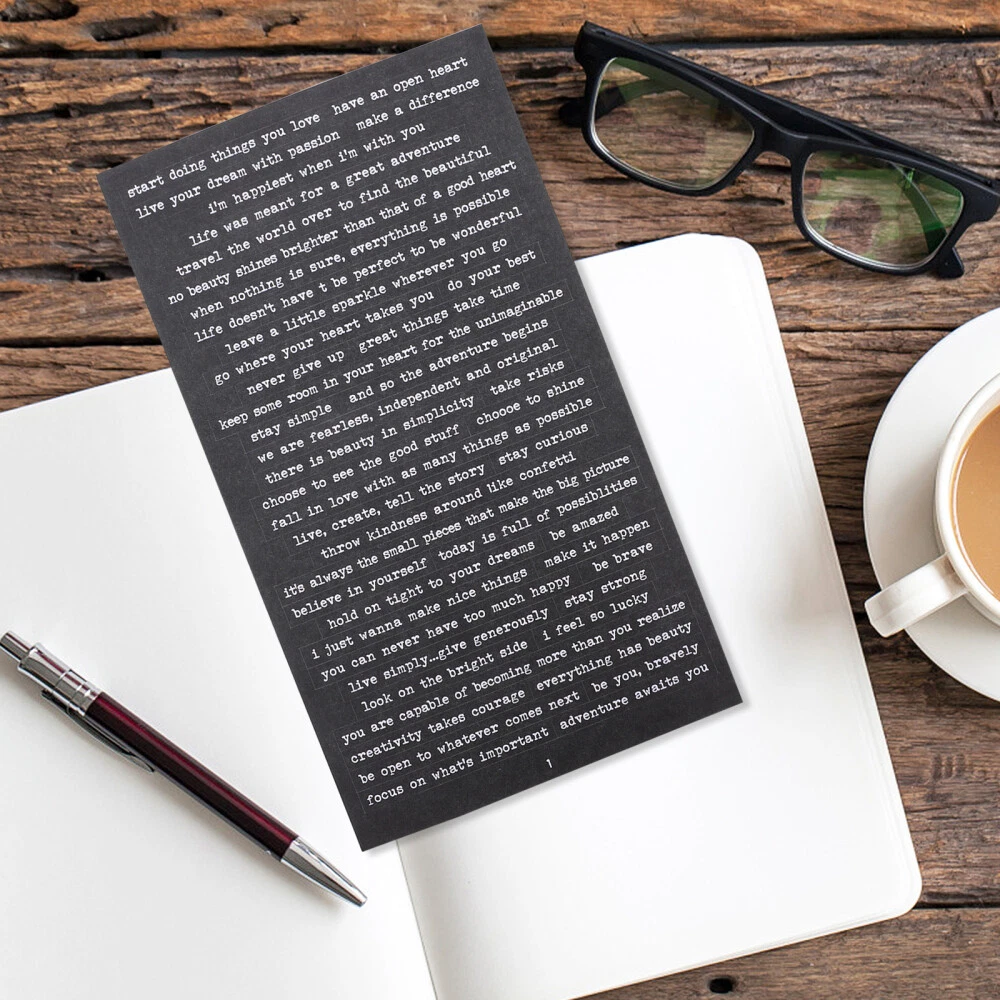 start doing things you love have an open heart
live your dream with passion make a difference
i'm happiest when i'm with you
life was meant for a great adventure
travel the world over to find the beautiful
no beauty shines brighter than that of a good heart
when nothing is sure, everything is possible
life doesn't have t be perfect to be wonderful
leave a little sparkle wherever you go
go where your heart takes you do your best
never give up great things take time
keep some room in your heart for the unimaginable
stay simple and so the adventure begins
we are fearless, independent and original
there is beauty in simplicity take risks
choose to see the good stuff choooe to shine
fall in love with as many things as possible
live, create, tell the story stay curious
throw kindness around like confetti
it's always the small pieces that make the big picture
believe in yourself today is full of possiblities
hold on tight to your dreams be amazed
i just wanna make nice things make it happen
you can never have too much happy be brave
live simply...give generously stay strong
look on the bright side i feel so lucky
you are capable of becoming more than you realize
creativity takes courage everything has beauty
be open to whatever comes next be you, bravely
focus on what's important adventure awaits you
1